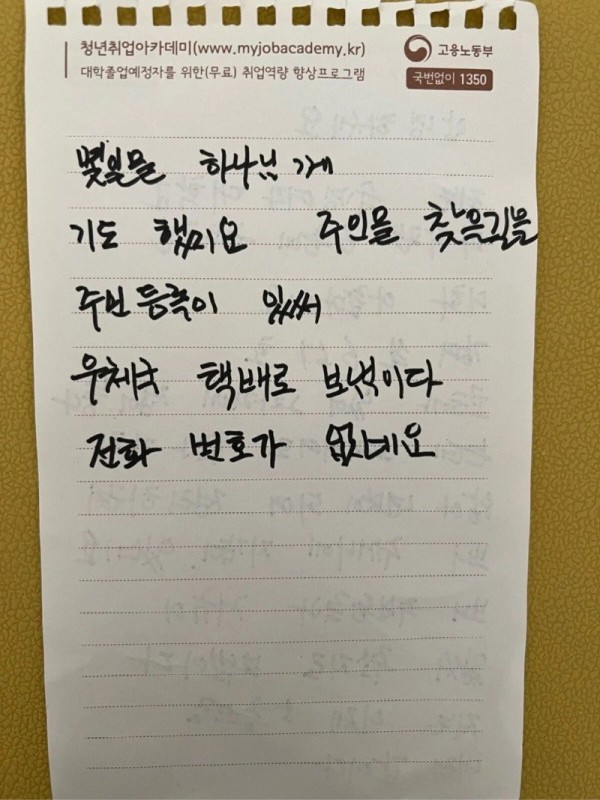 청년취업아카데미(www.myjobacademy.kr)
대학졸업예정자를 위한(무료) 취업역량 향상프로그램
고용노동부
국번없이 1350
몇일믈 하나님 게
기도 했미요 주인믈 찾믄길믈
주민등록이 있써
우체국 택배로 보넊이다
전화 번호가 없네요